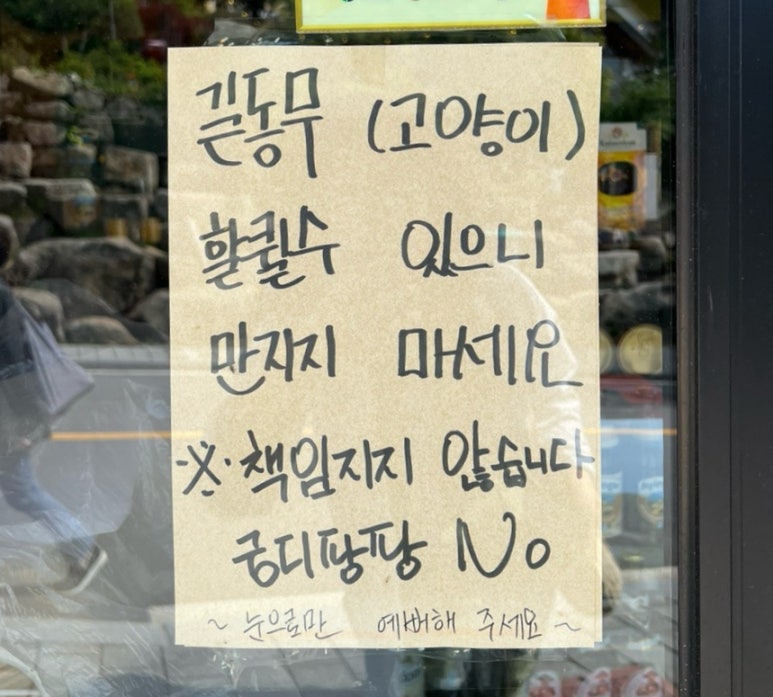 길동무 (고양이)
할퀼수 있으니
만지지 마세요
※ 책임지지 않습니다
궁디팡팡 No
~ 눈으로만 예뻐해 주세요 ~